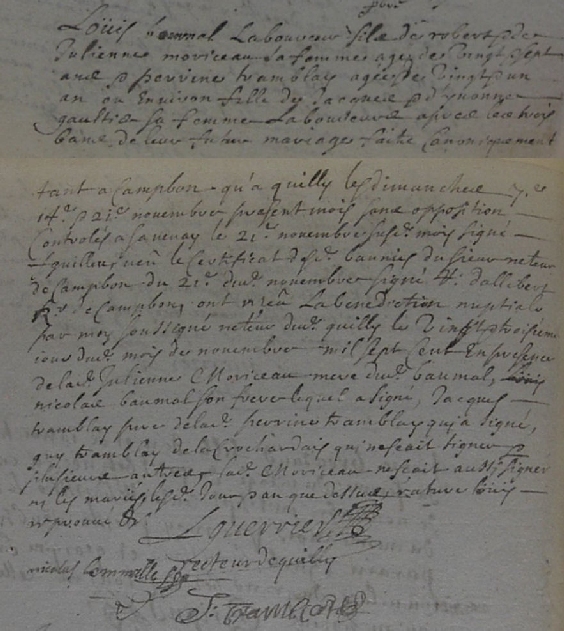 Louis bommal Laboureur fils de robert & de
Julienne moriceau sa femme agé de vingt sept
ans & perrine tramblay agée de vingt & un
an ou Environ fille de Jacques & d'yvonne
gaultier sa femme Laboureurs apres les trois
bans de leur futur mariage faits Canoniquement
tant a Campbon qu'a quilly les dimanches 7.e
14.e & 21.e novembre present mois sans opposition
Controlés a Savenay le 21.e novembre susd. mois signé
veu le Certificat desd. bannies du sieur recteur
de Campbon du 21.e dud. novembre signé
de Campbon, ont reçu La benediction nuptiale
par moy soussigné recteur dud. quilly le vingt & troisieme
jour dud. mois de novembre mil sept cent En presence
de lad. Julienne Moriceau mere dud. baumal,
nicolas baumal son frere lequel a signé, Jacques
tramblay pere de lad. perrine tramblay qui a signé,
guy tramblay de la qui ne scait signer &
plusieurs autres lad. Moriceau ne scait aussy signer
ny les mariés lesd. jour & an que dessus, rature
reprouvé
Lguerrier
nicolas bommalle recteur de quilly
J. Tramblais